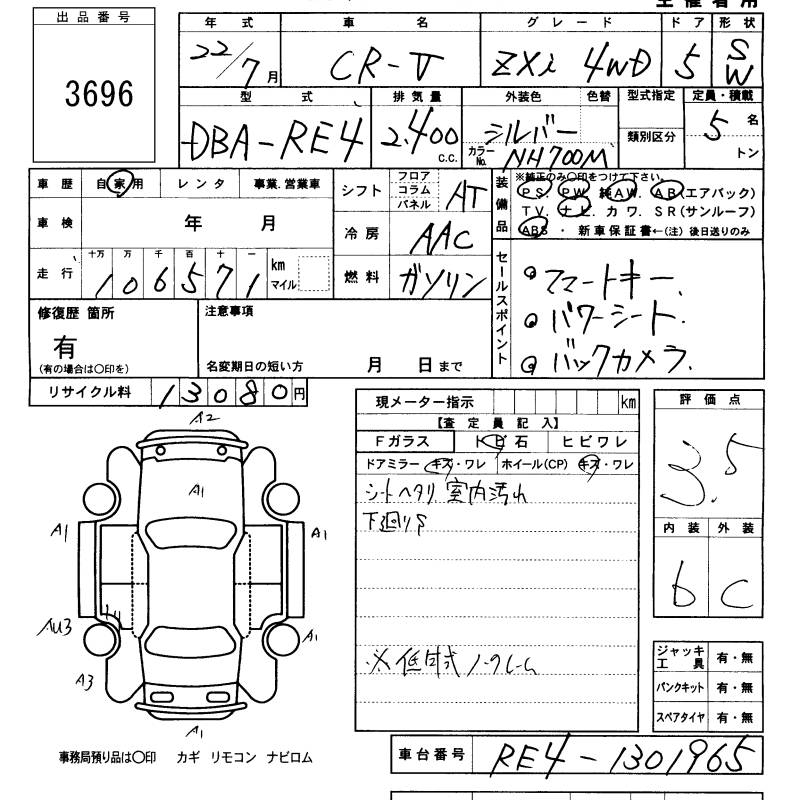 主催者用
出品番号
3696
年式 車名 グレード ドア 形状
22/7月 CR-V ZXi 4WD 5 SW
型式 排気量 外装色 色替 型式指定 定員・積載
DBA-RE4 2,400 C.C. シルバー 類別区分 5名
カラーNo. NH700M トン
車歴 自家用 レンタ 事業.営業車 シフト フロア コラム パネル AT
装備品 ※純正のみ〇印をつけて下さい。
PS. PW. 純AW. AB(エアバック)
TV. ナビ. カワ. SR(サンルーフ)
ABS ・ 新車保証書←(注) 後日送りのみ
車検 年 月 冷房 AAC
十万 万 千 百 十 一
走行 106571 km マイル 燃料 ガソリン
セールスポイント
スマートキー.
パワーシート.
バックカメラ.
修復歴 箇所 注意事項
有
(有の場合は〇印を) 名変期日の短い方 月 日まで
リサイクル料 13080円
現メーター指示 km
【査定員記入】
Fガラス トビ石 ヒビワレ
ドアミラー キズ・ワレ ホイール(CP) キズ・ワレ
シートヘタリ 室内汚れ
下廻りS
※低年式ノークレーム
評価点
3.5
内装 外装
6 C
A2
A1
A1
A1
AU3
A1
A3
A1
ジャッキ工具 有・無
パンクキット 有・無
スペアタイヤ 有・無
事務局預り品は〇印 カギ リモコン ナビロム
車台番号 RE4-1301965